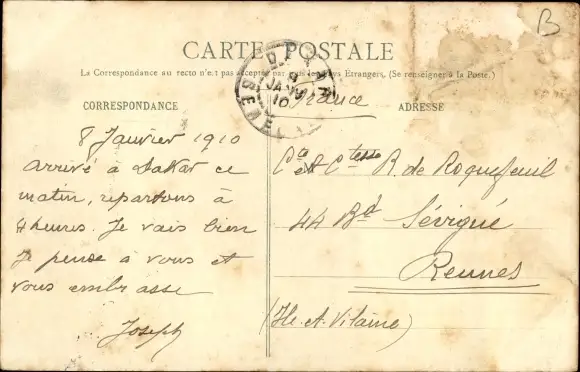 B
CARTE POSTALE
La Correspondance au recto n'est pas acceptée par tous les pays Etrangers. (Se renseigner à la Poste.)
DAKAR
8
JANV
10
SENEGAL
France
CORRESPONDANCE
ADRESSE
8 Janvier 1910
Arrivé à Dakar ce
matin, repartons à
4 heures. Je vais bien
Je pense à vous et
vous embrasse
Joseph
Cte & Ctesse R. de Roquefeuil
44 Bd Sévigné
Rennes
(Ile-et-Vilaine)